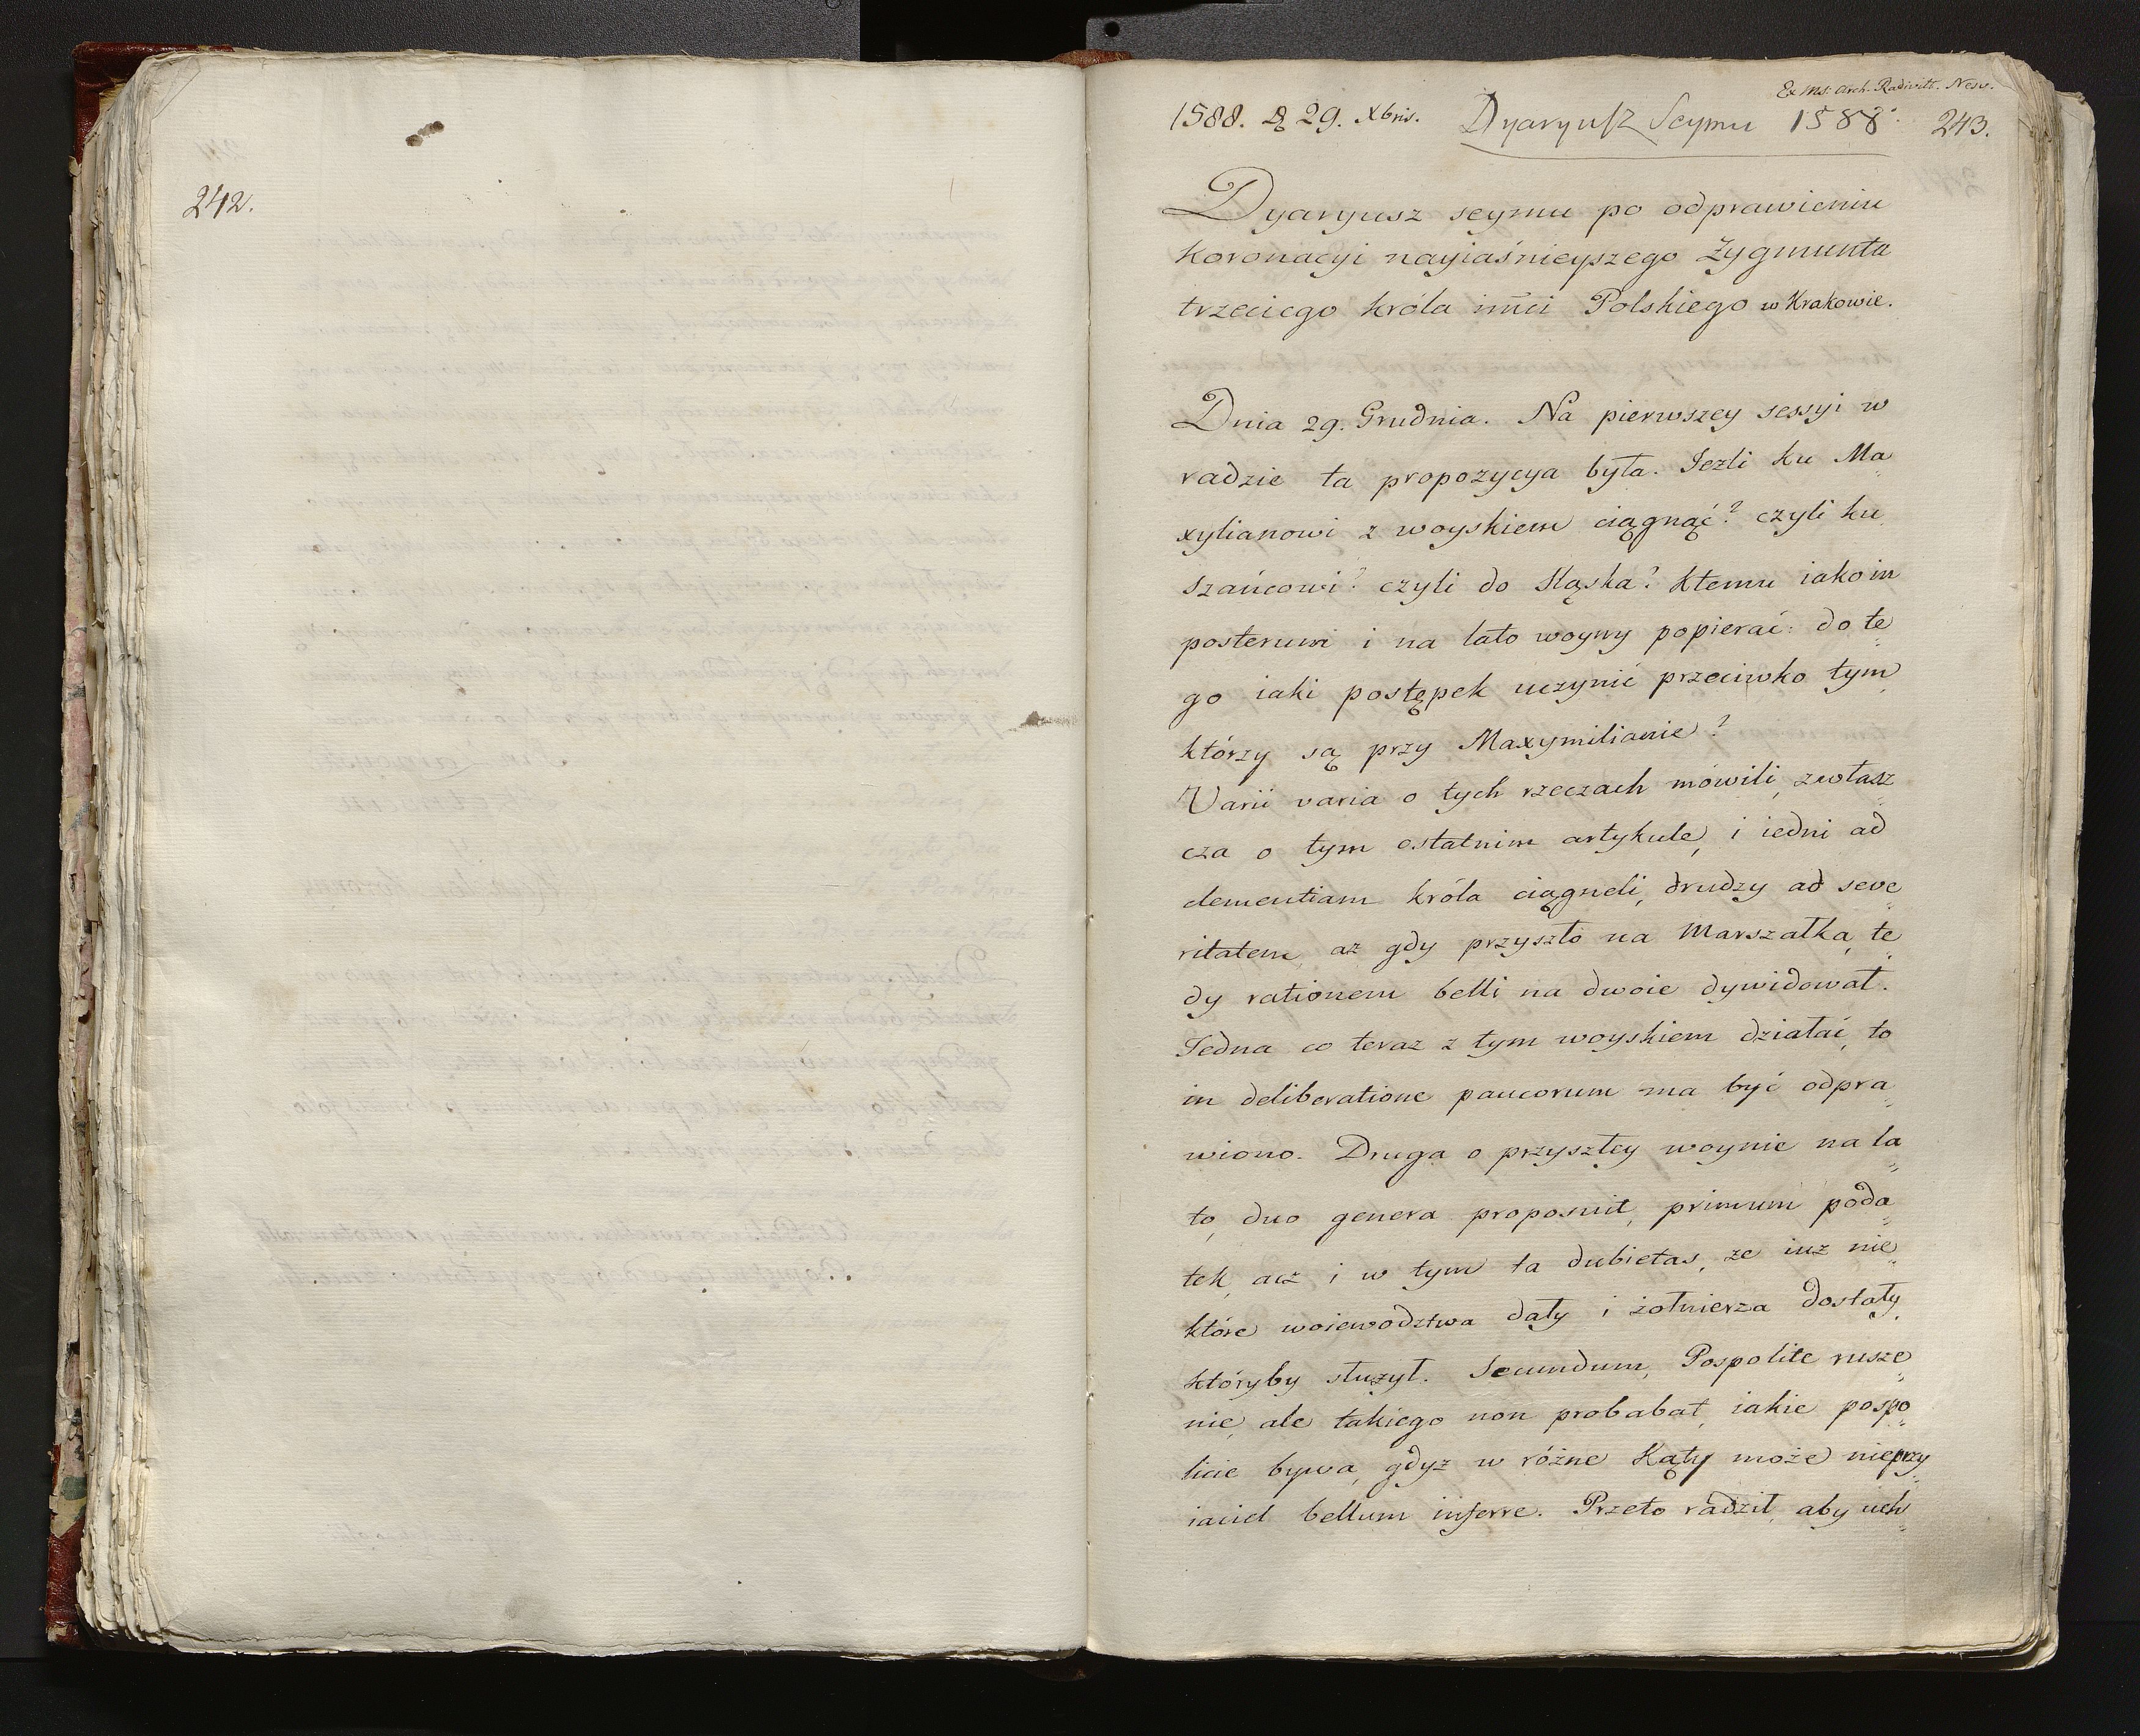 242.
Ex Ms: Arch. Radivil. Nesv.
1588. D 29. Xbris. Dyaryusz Seymu 1588. 243.
Dyaryusz seymu po odprawieniu
koronacyi nayiaśnieyszego Zygmunta
trzeciego króla imci Polskiego w Krakowie.
Dnia 29. Grudnia. Na pierwszey sessyi w
radzie ta propozycya była. Iezli ku Ma„
xylianowi z woyskiem ciągnąć? czyli ku
szańcowi? czyli do Sląska? Ktemu iako in
posterum i na lato woyny popierać: do te„
go iaki postępek uczynić przeciwko tym,
którzy są przy Maxymilianie?
Varii varia o tych rzeczach mówili, zwłasz„
cza o tym ostatnim artykule, i iedni ad
clementiam króla ciągneli, drudzy ad seve„
ritatem, az gdy przyszło na Marszałka, te„
dy rationem belli na dwoie dywidował.
Iedna co teraz z tym woyskiem działać, to
in deliberatione paucorum ma być odpra„
wiono. Druga o przyszłey woynie na la„
to, duo genera proposuit, primum poda„
tek, acz i w tym ta dubietas, ze iuz nie„
które woiewodztwa dały i żołnierza dostały,
któryby służył. Secundum, Pospolite rusze„
nie, ale takiego non probabat, iakie pospo„
licie bywa, gdyz w różne Kąty może nieprzy„
iaciel bellum inferre. Przeto radził, aby uch„